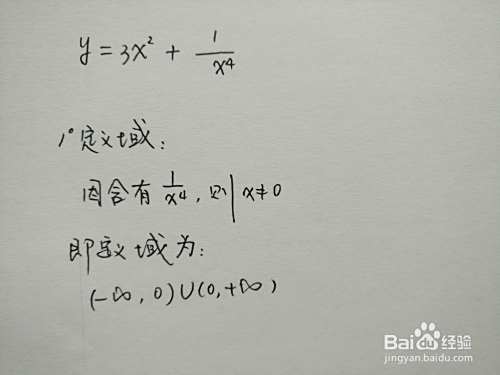 y = 3x² + 1/x⁴
1°定义域：
因含有 1/x⁴，则 x≠0
即定义域为：
(-∞, 0)∪(0,+∞)
Baidu 经验
jingyan.baidu.com